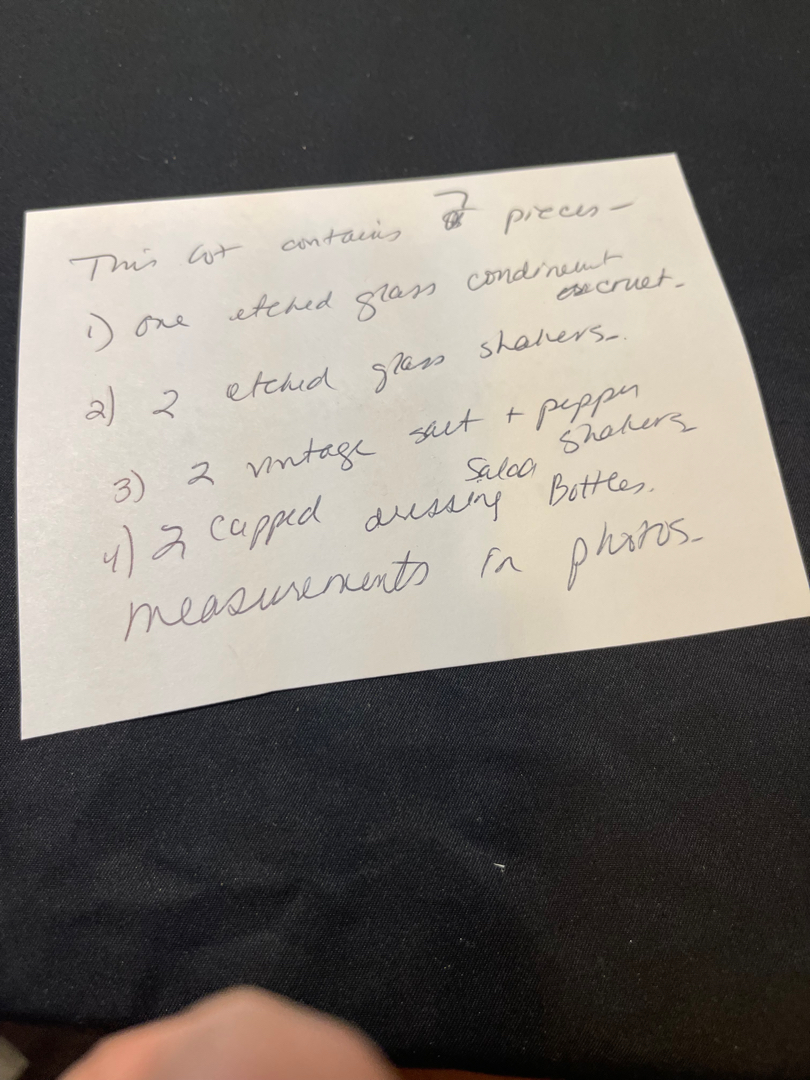 This lot contains 7 pieces -
1) one etched glass condiment cruet.
2) 2 etched glass shakers -.
3) 2 vintage salt + pepper shakers
4) 2 capped salad dressing Bottles.
measurements in photos -